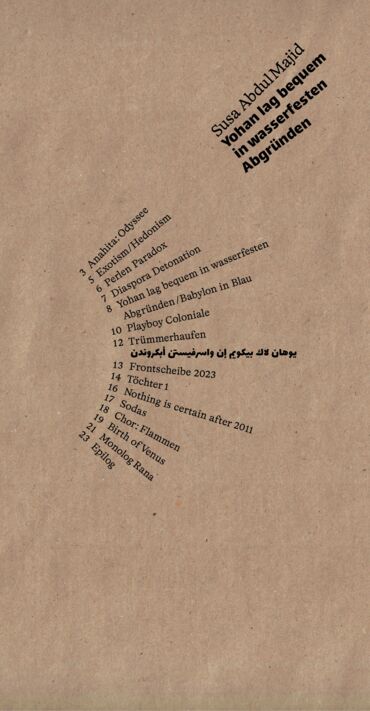 Susa Abdul Majid
Yohan lag bequem
in wasserfesten
Abgründen
3 Anahita: Odyssee
5 Exotism / Hedonism
6 Perlen Paradox
7 Diaspora Detonation
8 Yohan lag bequem in wasserfesten
Abgründen / Babylon in Blau
10 Playboy Coloniale
12 Trümmerhaufen
يوهان لاك بيكويم إن واسرفيستن أبكروندن
13 Frontscheibe 2023
14 Töchter 1
16 Nothing is certain after 2011
17 Sodas
18 Chor: Flammen
19 Birth of Venus
21 Monolog Rana
23 Epilog